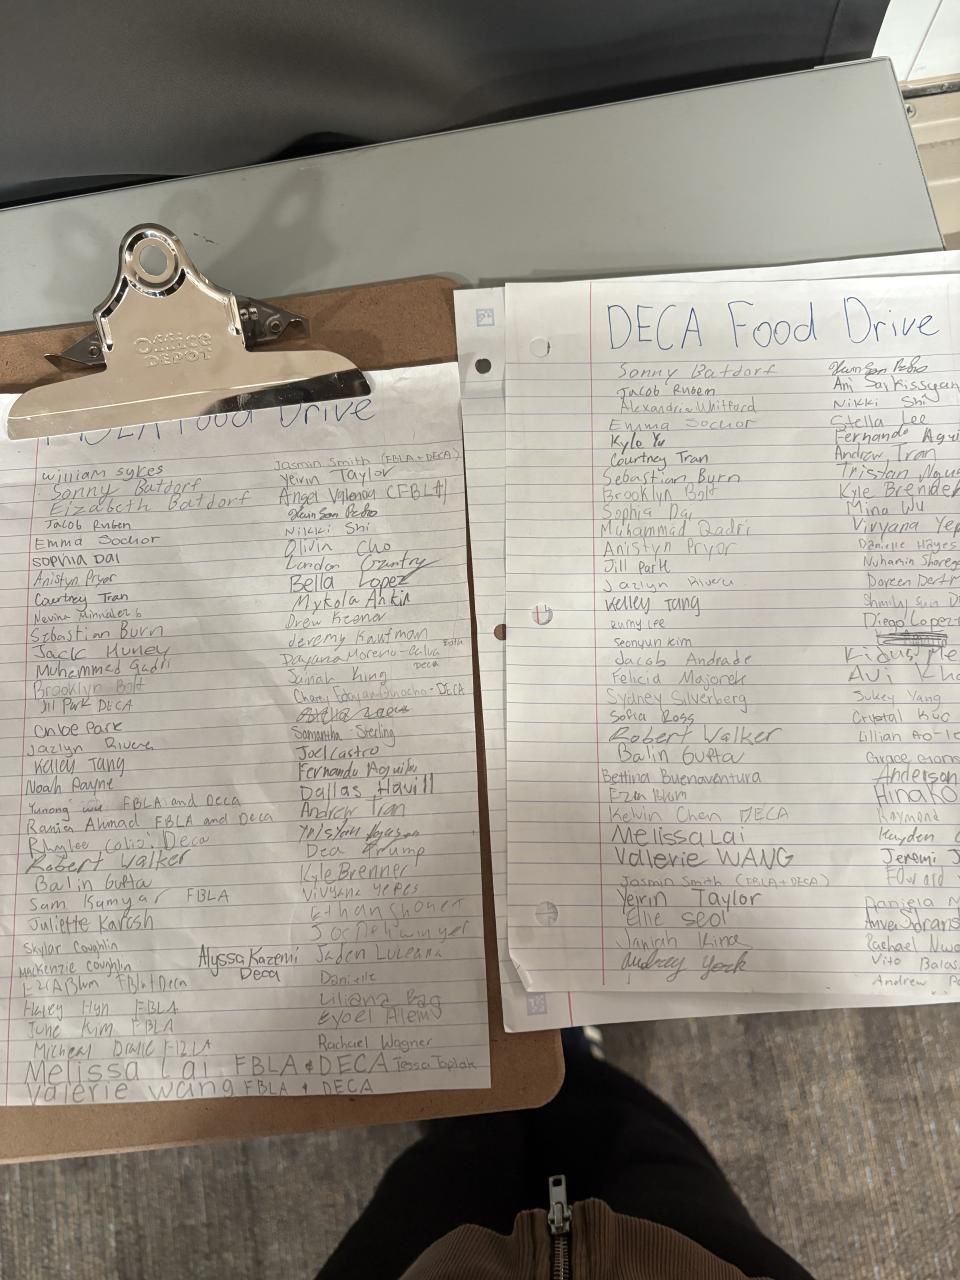 Office
DEPOT
FBLA Food Drive
william sykes
Sonny Batdorf
Elizabeth Batdorf
Jacob Ruben
Emma Sochor
sophia Dai
Anistyn Pryor
Courtney Tran
Sebastian Burn
Jack Huney
Muhammed Qadri
Brooklyn Bolt
Jill Park DECA
Chloe Park
Jazlyn Rivera
Kelley Tang
Noah Payne
Yunong Wu FBLA and Deca
Rania Ahmad FBLA and Deca
Rhylee Deca
Robert Walker
Balin Gupta
Sam Kamyar FBLA
Juliette Karesh
Skylar Coughlin
Mackenzie Coughlin
Ezra Blum FBLA+Deca
Haley Hyn FBLA
June Kim FBLA
Micheal FBLA
Melissa Lai FBLA & DECA
Valerie wang FBLA & DECA
Alyssa Kazemi
Deca
Jasmin Smith (FBLA+DECA)
Yeirin Taylor
Angel Valencia (FBLA)
Nikki Shi
Olivia Cho
London Gantry
Bella Lopez
Mykola Ankin
Drew Keenor
Jeremy Kaufman
Dayana Moreno-Calva Both
Janiah King DECA
DECA
Samantha Sterling
Joel Castro
Fernando Aguilar
Dallas Havill
Andrew Tran
Tristan Nguyen
Dea Trump
Kyle Brenner
Vivyana Yepes
Ethan Shoner
Jaden
Danielle
Liliana Bag
Eyoel Alemu
Rachael Wagner
Tessa Toplak
DECA Food Drive
Sonny Batdorf
Jacob Ruben
Alexandria Whitford
Emma Sochor
Kylo Yu
Courtney Tran
Sebastian Burn
Brooklyn Bolt
Sophia Dai
Muhammad Qadri
Anistyn Pryor
Jill Park
Jazlyn Rivera
Kelley Tang
Rumy Lee
Seonyun Kim
Jacob Andrade
Felicia Majorek
Sydney Silverberg
Sofia Ross
Robert Walker
Balin Gupta
Bettina Buenaventura
Ezra Blum
Kelvin Chan DECA
Melissa Lai
Valerie WANG
Jasmin Smith (FBLA+DECA)
Yeirin Taylor
Ellie Seol
Janiah King
Audrey York
Ani Sarkissyan
Nikki Shi
Stella Lee
Fernando Agui
Andrew Tran
Tristan Ngu
Kyle Brenner
Mina Wu
Vivyana Yep
Danielle Hayes
Nuhamin
Doreen
Diego Lopez
Kidus Me
Avi Kha
Sukey Yang
Crystal Kuo
Lillian
Grace
Anderson
Hinako
Raymond
Hayden
Jeremi J
Edward
Daniela M
Rachael
Vito Balas
Andrew